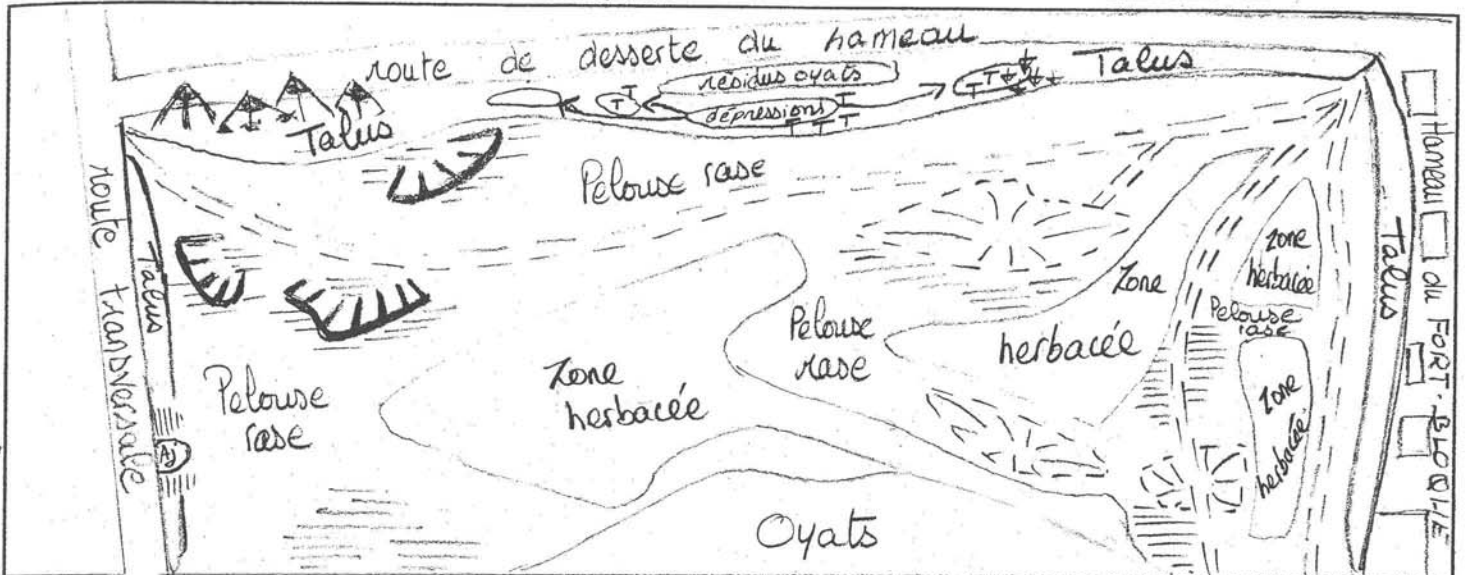 route de desserte du hameau
résidus oyats
dépressions
T
T
T
T
T
T
T
T
T
Talus
Talus
route transversale
Talus
Pelouse rase
Pelouse
rase
Zone
herbacée
Pelouse
rase
Zone
herbacée
Zone
herbacée
Pelouse
rase
Zone
herbacée
Talus
Hameau du FORT-BLOQUÉ
Aj
Oyats